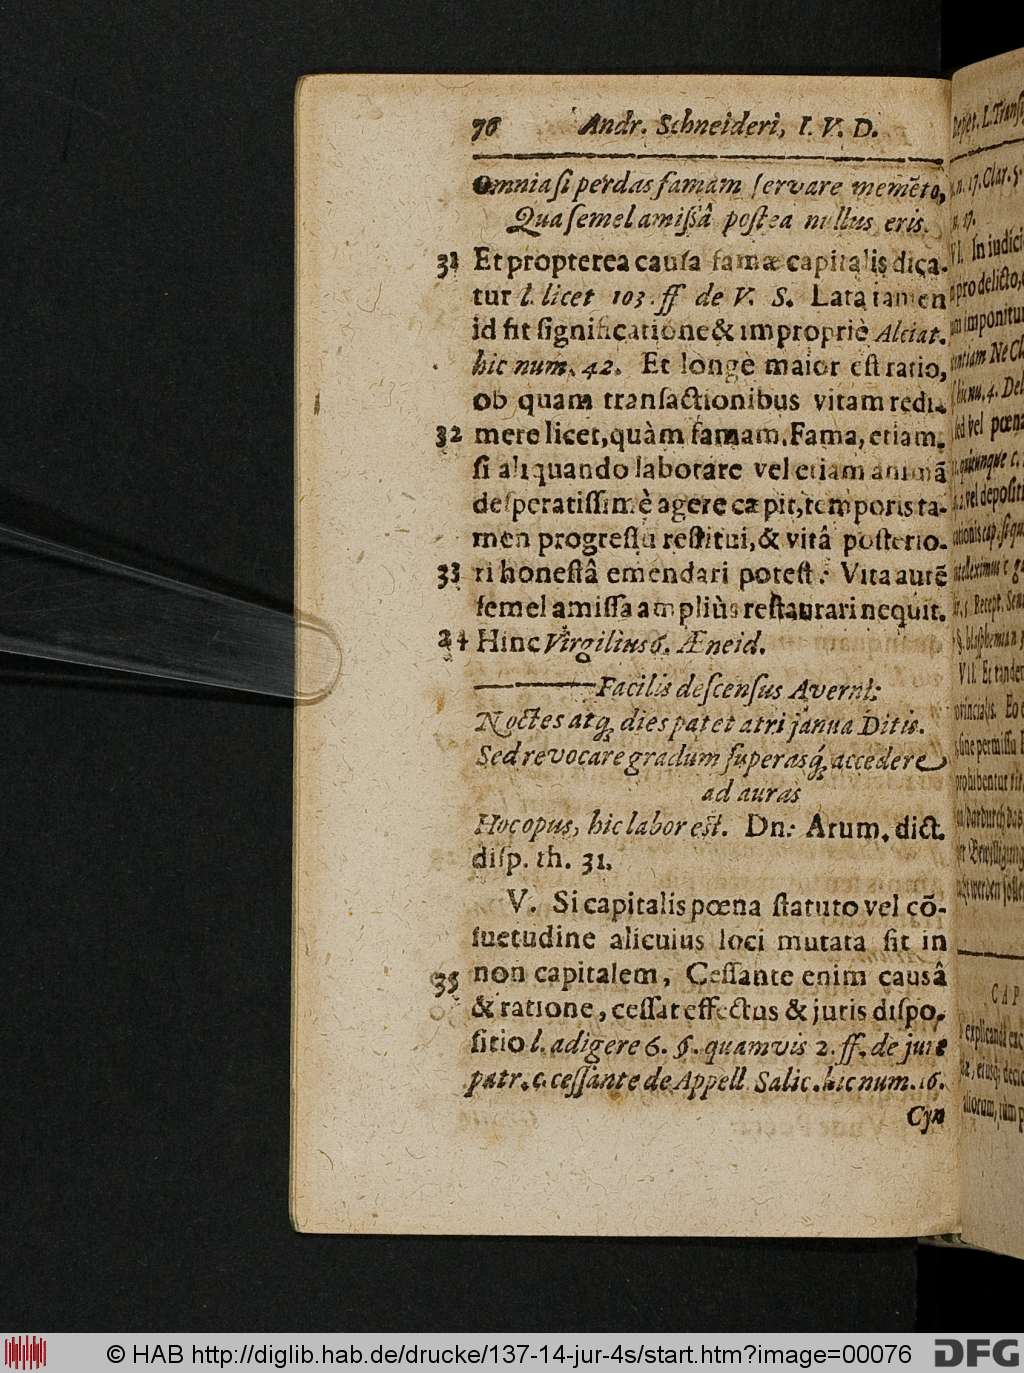 76 Andr. Schneideri, I. V. D.
Omnia si perdas famam servare memẽto,
Qua semel amißâ postea nullus eris.
31 Et propterea causa famæ capitalis dica-
tur l. licet 103. ff de V. S. Lata tamen
id fit significatione & impropriè Alciat.
hic num. 42. Et longè maior est ratio,
ob quam transactionibus vitam redi-
32 mere licet, quàm famam. Fama, etiam
si aliquando laborare vel etiam animã
desperatissimè agere cæpit, temporis ta-
men progressu restitui, & vitâ posterio-
33 ri honestâ emendari potest: Vita autẽ
semel amissa ampliùs restaurari nequit.
34 Hinc Virgilius 6. Æneid.
Facilis descensus Averni:
Noctes atq́; dies patet atri janua Ditis.
Sed revocare gradum superasq́; accedere
ad auras
Hoc opus, hic labor est. Dn: Arum. dict.
disp. th. 31.
V. Si capitalis pœna statuto vel cõ-
suetudine alicuius loci mutata sit in
35 non capitalem, Cessante enim causâ
& ratione, cessat effectus & juris dispo-
sitio l. adigere 6. §. quamvis 2. ff. de jure
patr. c. cessante de Appell Salic. hic num. 16.
Cyn
© HAB http://diglib.hab.de/drucke/137-14-jur-4s/start.htm?image=00076
DFG